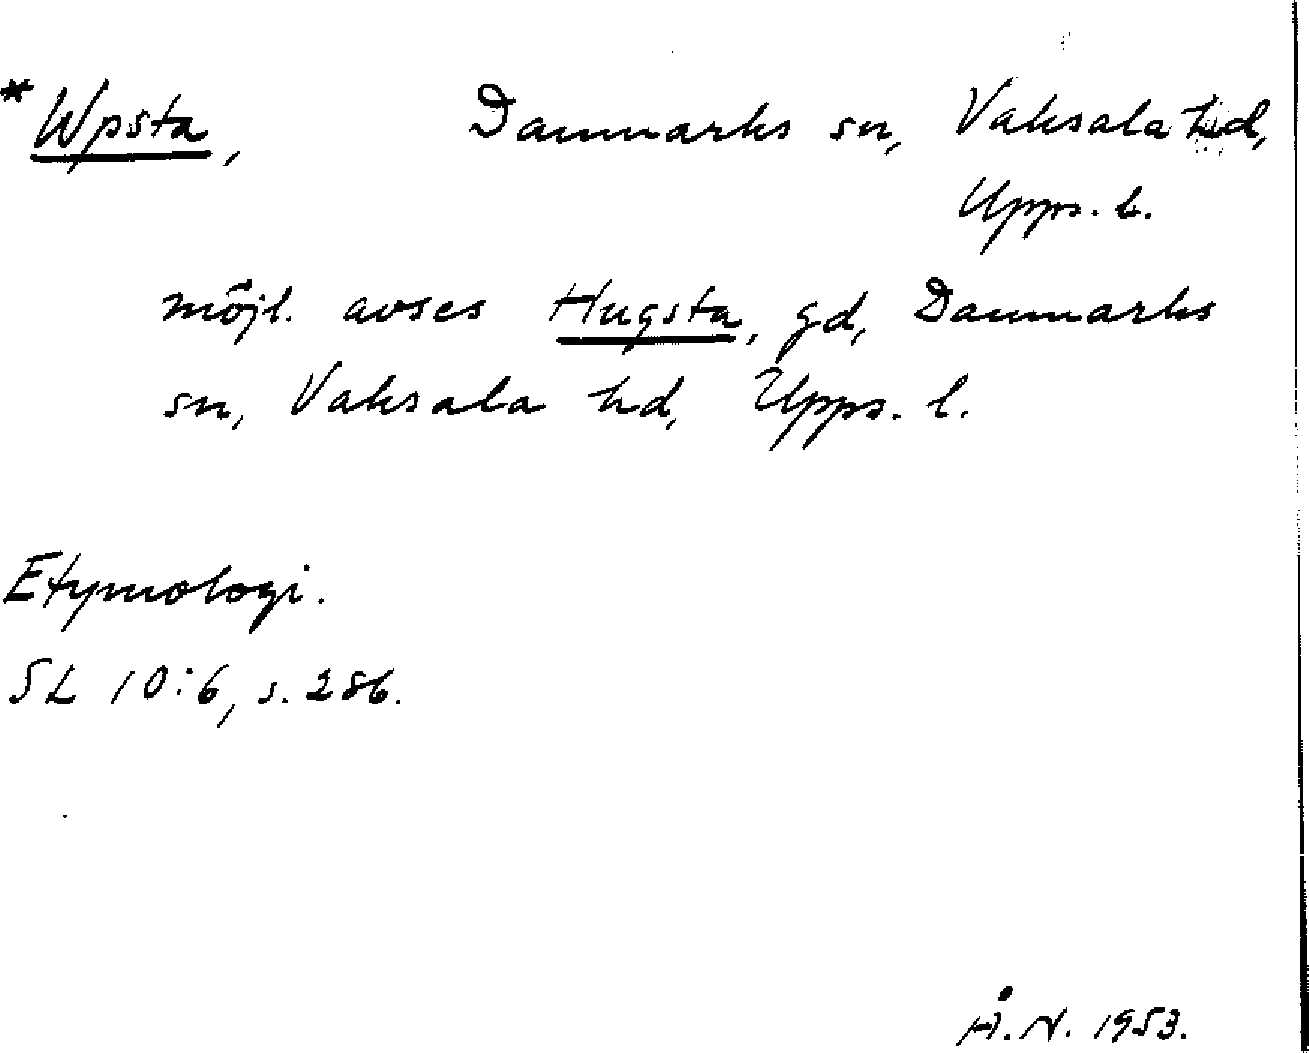 *Wpsta, Danmarks sn, Vaksala hd,
Upps. l.
möjl. avses Hugsta, gd, Danmarks
sn, Vaksala hd, Upps. l.
Etymologi.
SL 10:6, s. 286.
Å.N. 1953.